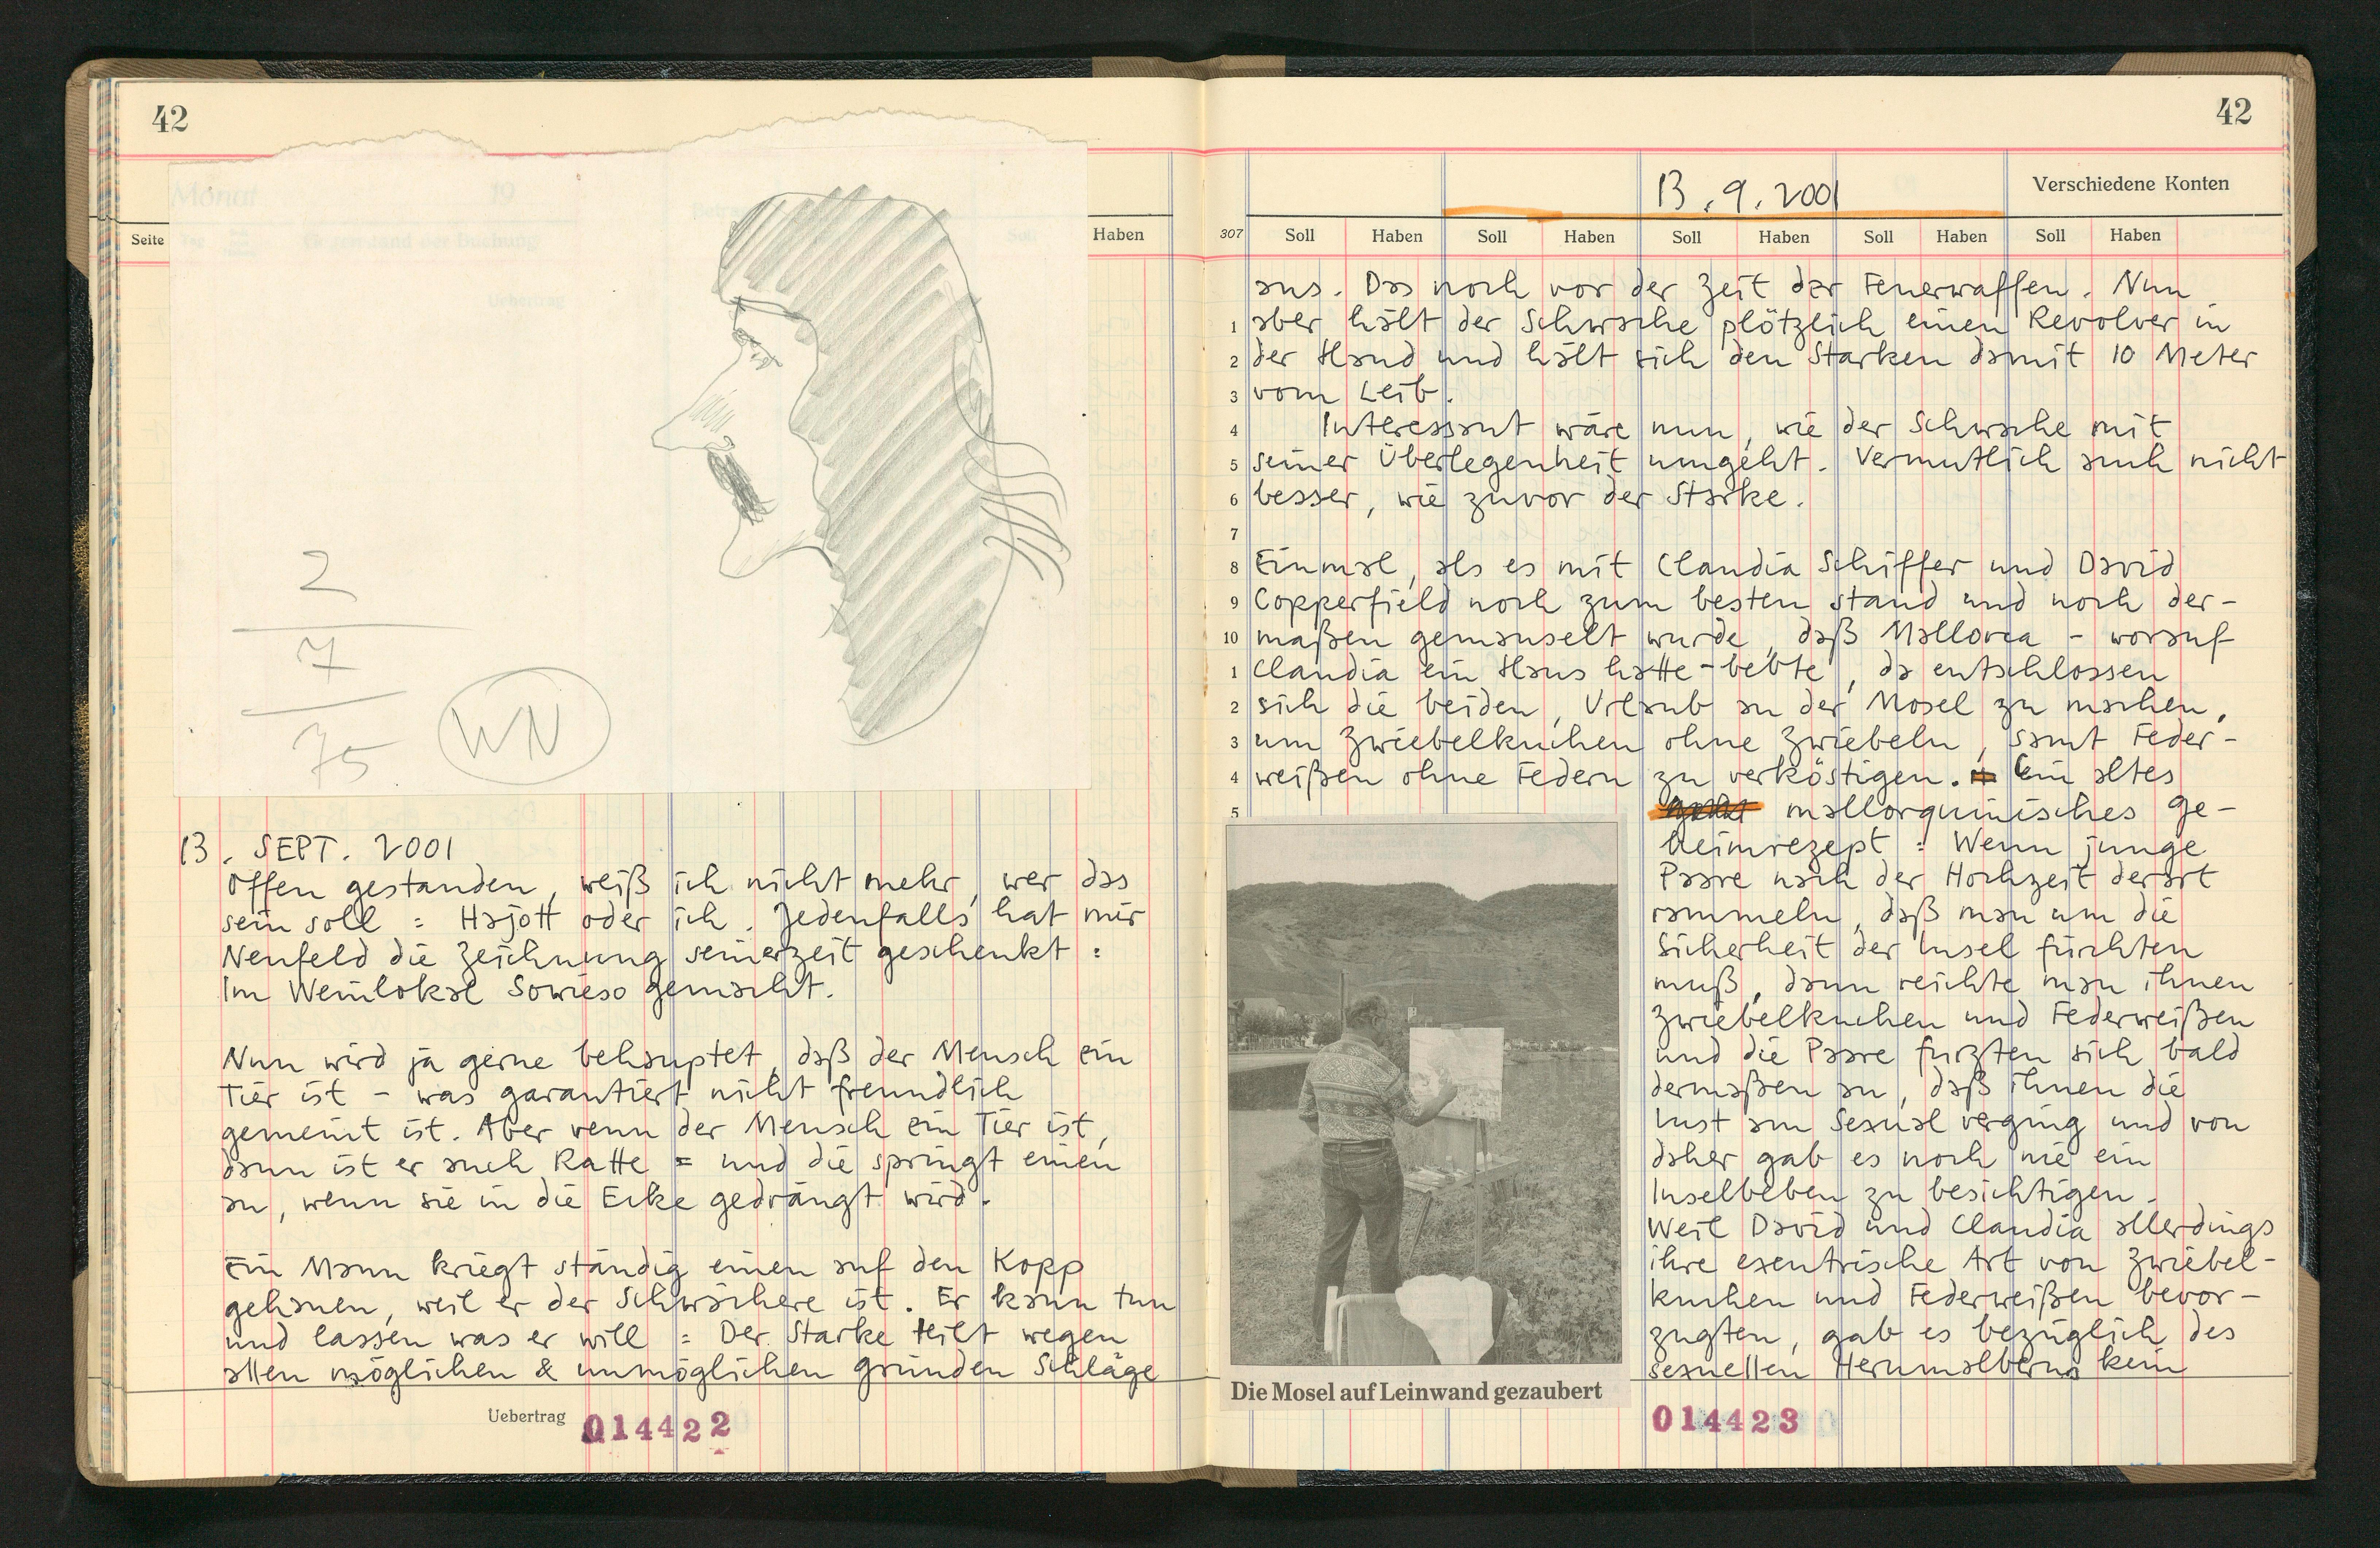 42
Monat 19
Seite
Gegenstand der Buchung
Soll
Haben
Uebertrag
2
7
75
WN
13. SEPT. 2001
Offen gestanden, weiß ich nicht mehr, wer das
sein soll : Hajott oder ich. Jedenfalls hat mir
Neufeld die Zeichnung seinerzeit geschenkt :
Im Weinlokal Sowieso gemacht.
Nun wird ja gerne behauptet, daß der Mensch ein
Tier ist – was garantiert nicht freundlich
gemeint ist. Aber wenn der Mensch ein Tier ist,
dann ist er auch Ratte = und die springt einen
an, wenn sie in die Ecke gedrängt wird.
Ein Mann kriegt ständig einen auf den Kopp
gehauen, weil er der Schwächere ist. Er kann tun
und lassen was er will : Der Starke teilt wegen
allen möglichen & unmöglichen Gründen Schläge
Uebertrag 014422
42
13.9.2001
Verschiedene Konten
307 Soll Haben Soll Haben Soll Haben Soll Haben Soll Haben
aus. Das noch vor der Zeit der Feuerwaffen. Nun
1 aber hält der Schwache plötzlich einen Revolver in
2 der Hand und hält sich den Starken damit 10 Meter
3 vom Leib.
4 Interessant wäre nun, wie der Schwache mit
5 seiner Überlegenheit umgeht. Vermutlich auch nicht
6 besser, wie zuvor der Starke.
7
8 Einmal, als es mit Claudia Schiffer und David
9 Copperfield noch zum besten stand und noch der-
10 maßen gemauselt wurde, daß Mallorca – worauf
1 Claudia ein Haus hatte – bebte, da entschlossen
2 sich die beiden, Urlaub an der Mosel zu machen,
3 um Zwiebelkuchen ohne Zwiebeln, samt Feder-
4 weißen ohne Federn zu verköstigen. Ein altes
5 mallorquinisches Ge-
heimrezept : Wenn junge
Paare nach der Hochzeit derart
rammeln, daß man um die
Sicherheit der Insel fürchten
muß, dann reichte man ihnen
Zwiebelkuchen und Federweißen
und die Paare furzten sich bald
dermaßen an, daß ihnen die
Lust am Sexual verging und von
daher gab es noch nie ein
Inselbeben zu besichtigen.
Weil David und Claudia allerdings
ihre exentrische Art von Zwiebel-
kuchen und Federweißen bevor-
zugten, gab es bezüglich des
sexuellen Herumalberns kein
Die Mosel auf Leinwand gezaubert
014423